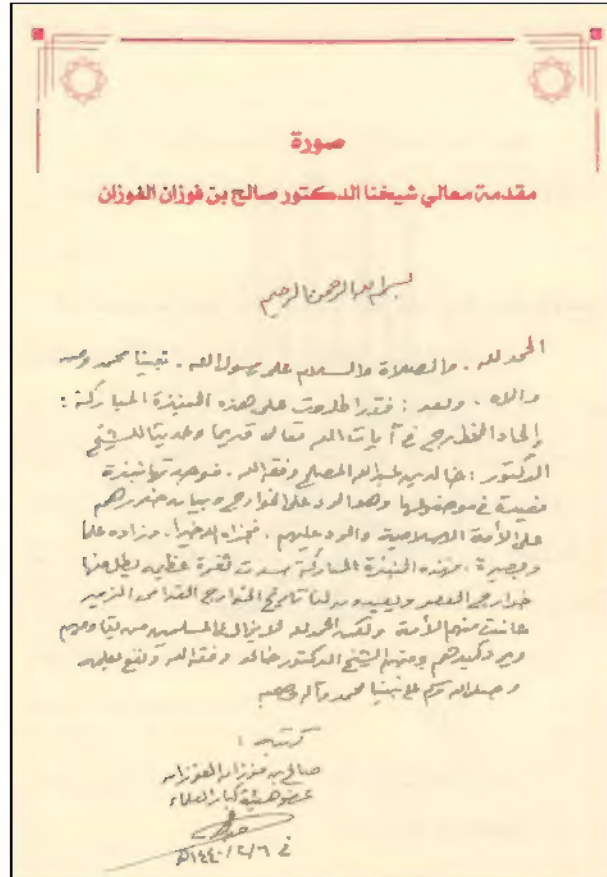 صورة
مقدمة معالي شيخنا الدكتور صالح بن فوزان الفوزان
بسم الله الرحمن الرحيم
الحمد لله . والصلاة والسلام على رسول الله . نبينا محمد ومن
والاه . وبعد : فقد اطلعت على هذه النبذة المباركة :
إلحاد الخوارج في آيات الله تعالى قديما وحديثا للشيخ
الدكتور : خالد بن عبدالله المصلح وفقه الله . فوجدتها نبذة
مفيدة في موضوعها وهو الرد على الخوارج وبيان ضررهم
على الأمة الإسلامية والرد عليهم . فجزاه الله خيرا . وزاده علما
وبصيرة . فهذه النبذة المباركة سدت ثغرة عظيمة يطل منها
خوارج العصر ويعيدون لنا تاريخ الخوارج القدامى الذين
عانت منهم الأمة ولكن الحمد لله لا يزال في المسلمين من يقاومهم
ويرد كيدهم ومنهم الشيخ الدكتور خالد وفقه الله ونفع بعلمه
وصلى الله وسلم على نبينا محمد وآله وصحبه
كتبه :
صالح بن فوزان الفوزان
عضو هيئة كبار العلماء
في ١٤٤٠/٢/٦هـ